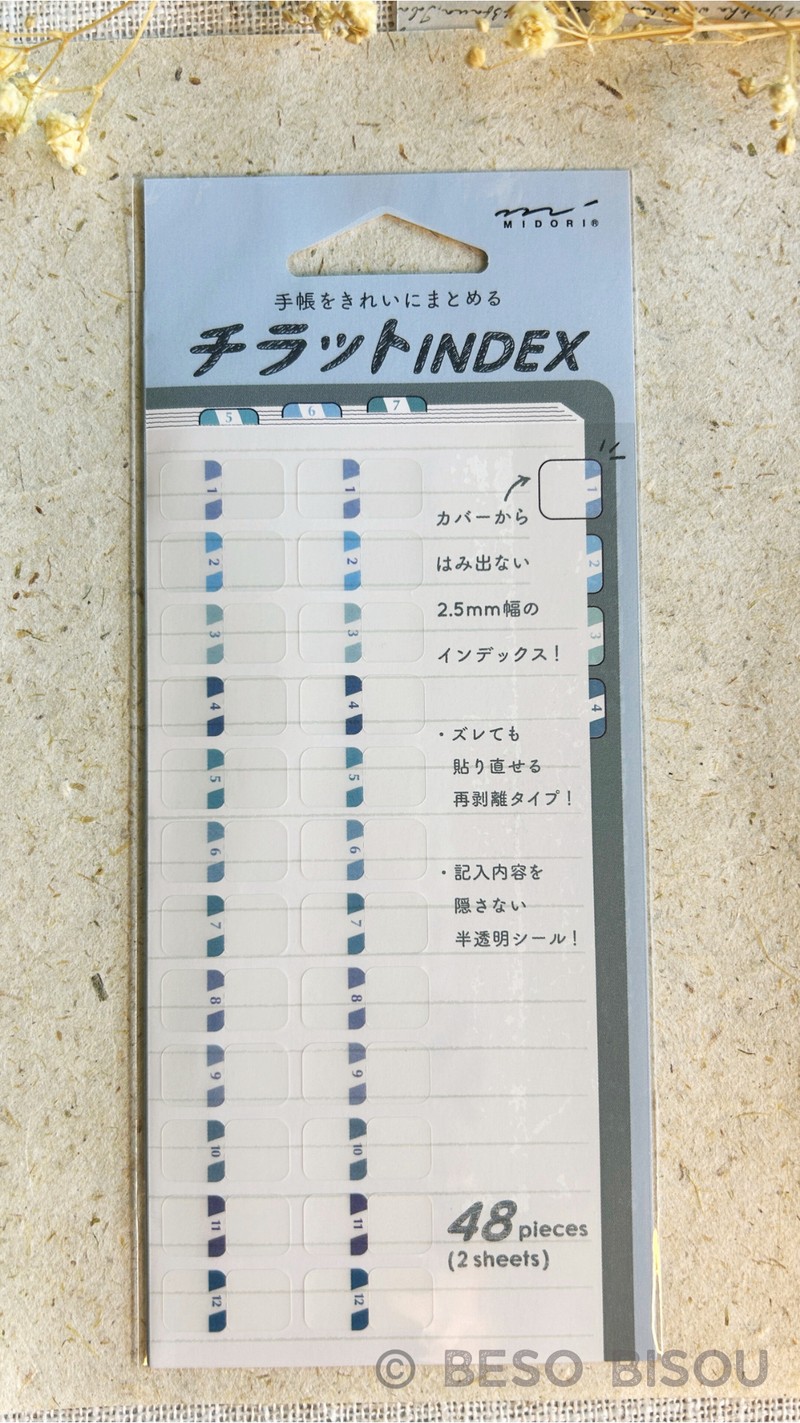 MIDORI®
手帳をきれいにまとめる
チラットINDEX
5 6 7
1 1 1
2 2 2
3 3 3
4 4 4
5 5
6 6
7 7
8 8
9 9
10 10
11 11
12 12
カバーから
はみ出ない
2.5mm幅の
インデックス！
・ズレても
貼り直せる
再剥離タイプ！
・記入内容を
隠さない
半透明シール！
48 pieces
(2 sheets)
© BESO BISOU